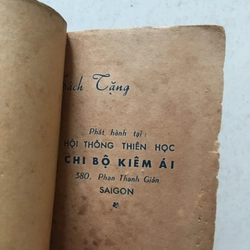 Sách Tặng
Phát hành tại:
HỘI THÔNG THIÊN HỌC
CHI BỘ KIÊM ÁI
580, Phan Thanh Giản
SAIGON